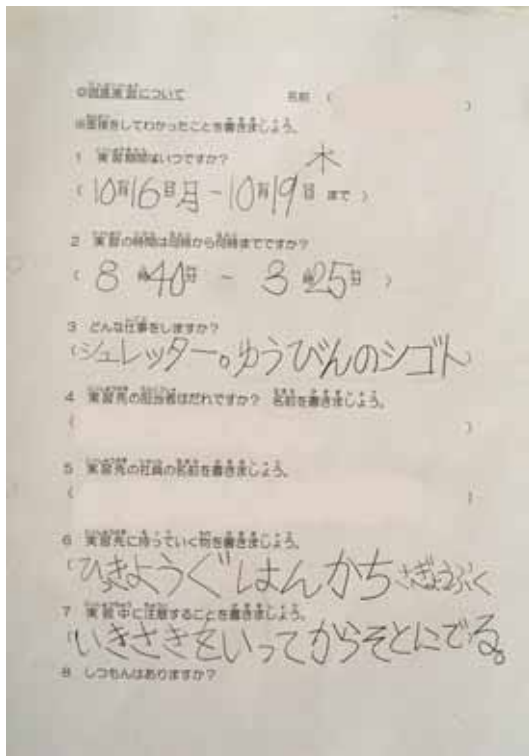 ◎職場実習について 名前（ ）
※面接をしてわかったことを書きましょう。
1 実習期間はいつですか？
木
（ 10月16日月 ~ 10月19日 まで ）
2 実習の時間は何時から何時までですか？
（ 8時40分 ~ 3時25分 ）
3 どんな仕事をしますか？
（シュレッター。ゆうびんのシゴト）
4 実習先の担当者はだれですか？ 名前を書きましょう。
（ ）
5 実習先の社員の名前を書きましょう。
（ ）
6 実習先に持っていく物を書きましょう。
（ひっきようぐ はんかち さぎょうふく
7 実習中に注意することを書きましょう。
（いきさきをいってからそとにでる。
8 しつもんはありますか？